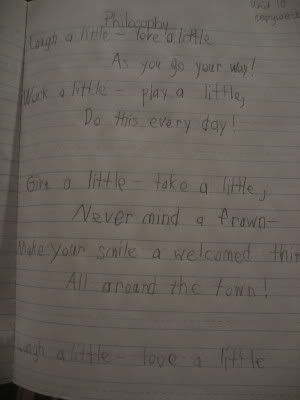 Unit 10
copywork
Philosophy
Laugh a little - love a little
As you go your way!
Work a little - play a little,
Do this every day!
Give a little - take a little,
Never mind a frown -
Make your smile a welcomed thin
All around the town!
Laugh a little - love a little